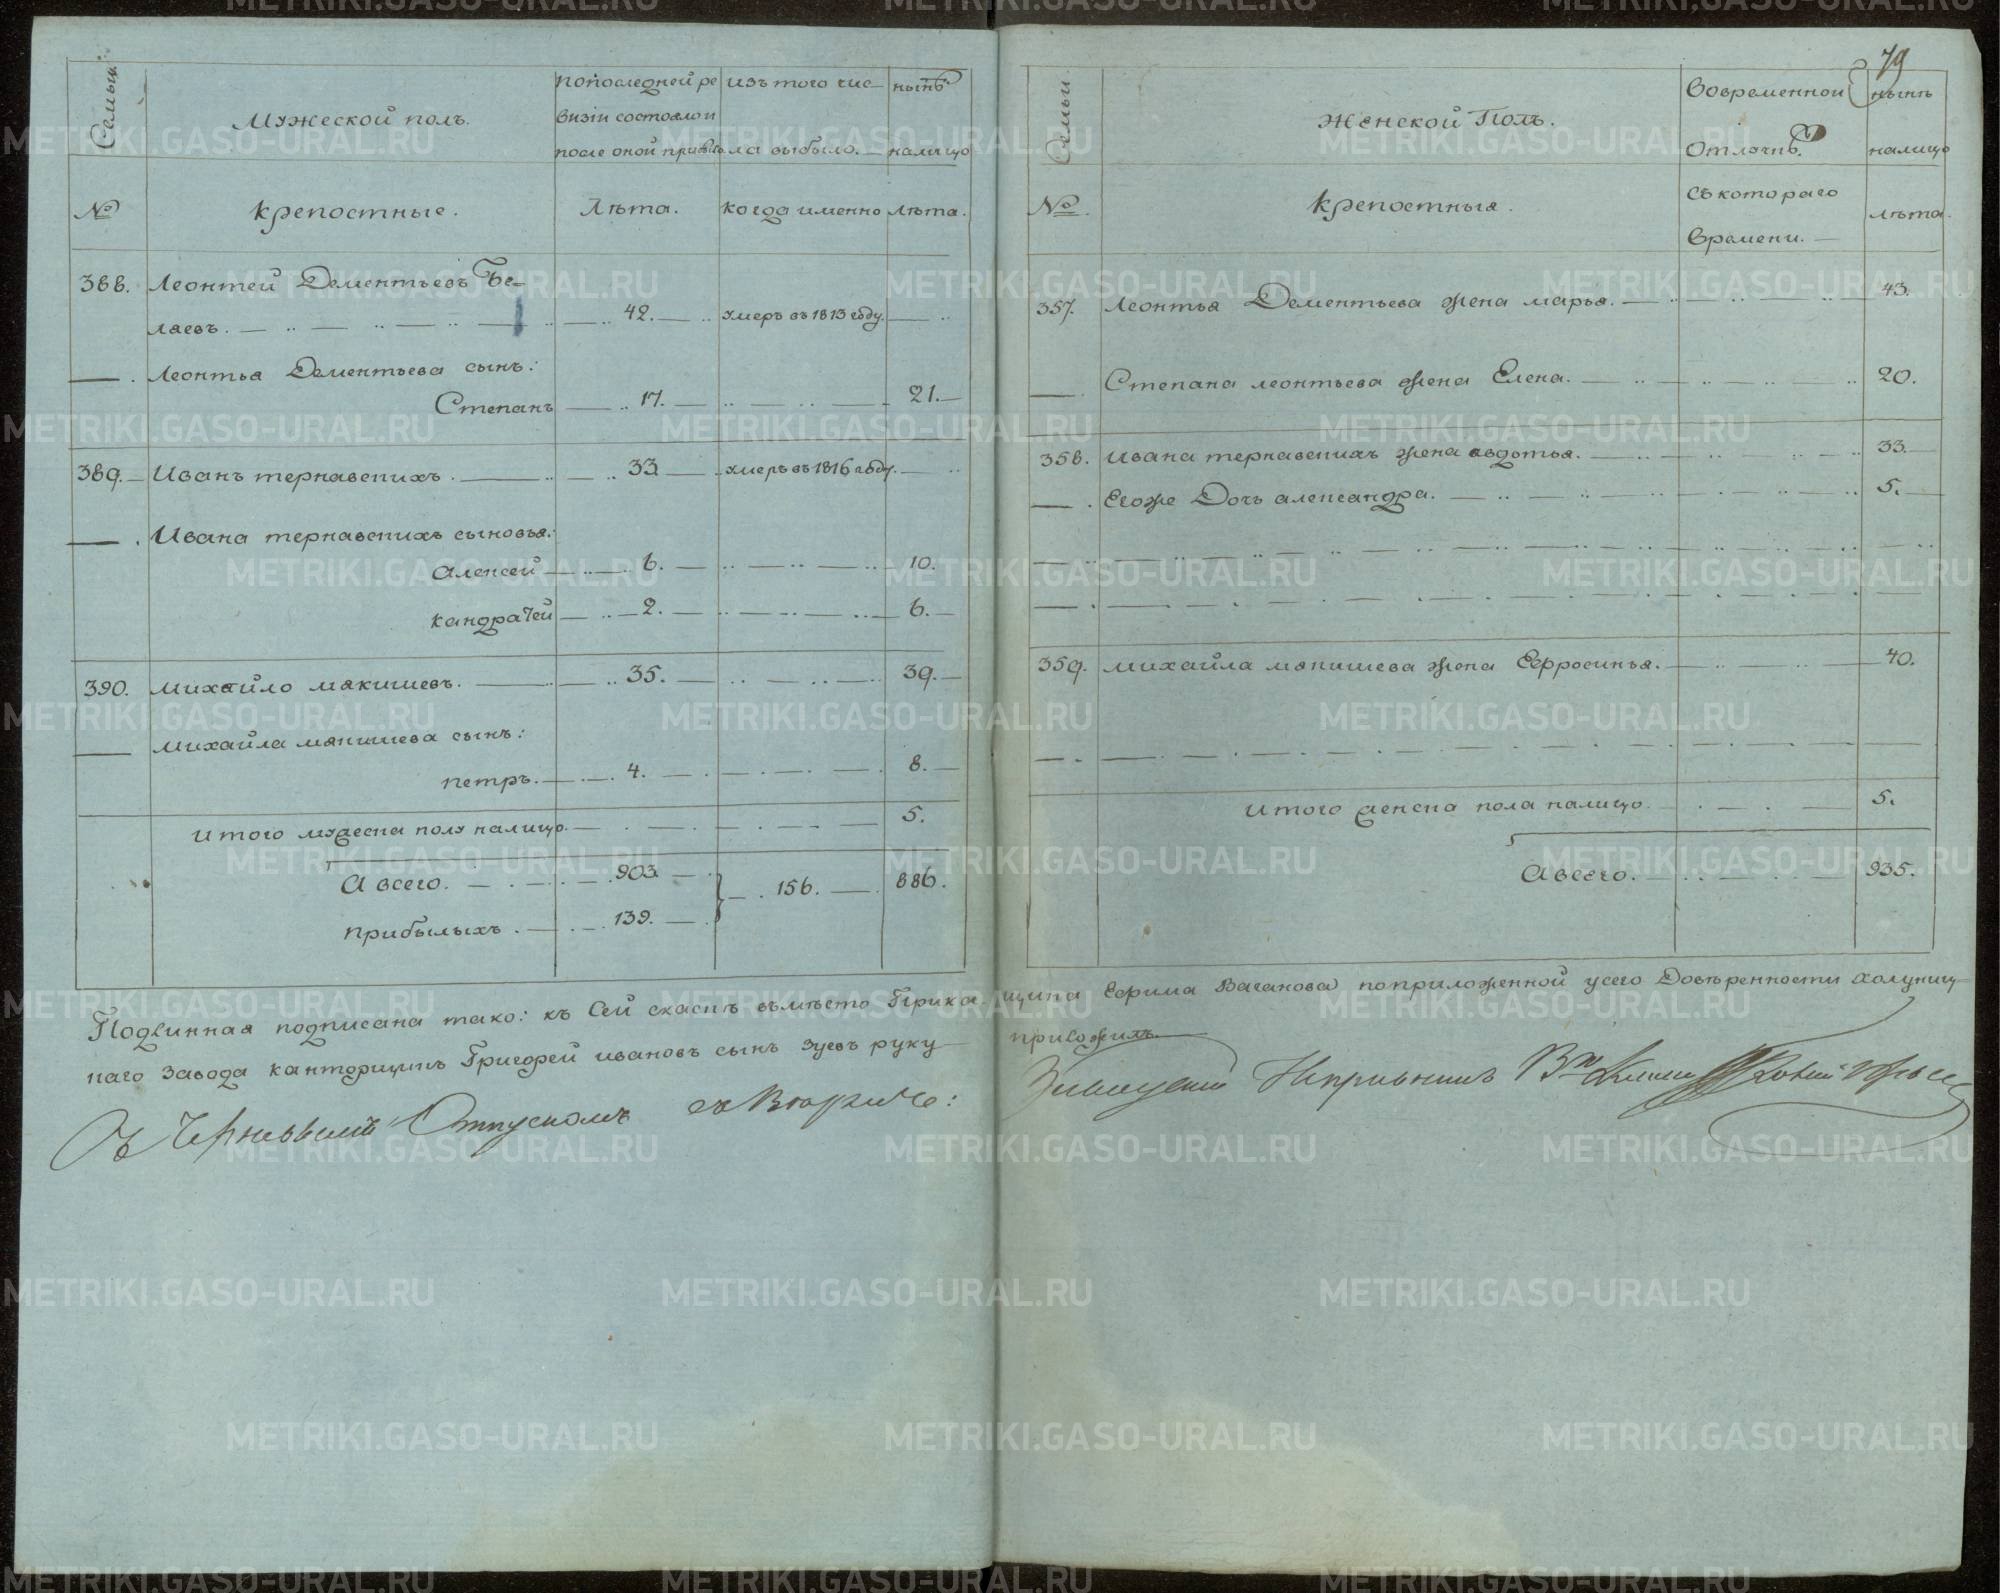 79
Семьи.
Мужеской полъ.
попоследней ре
визіи состояло и
после оной прибыло
изъ того чис-
ла выбыло.
нынѣ
налицо
№
крепостные.
Лѣта.
когда именно
лѣта.
388. Леонтей Дементьевъ Бе-
лаевъ. 42. умеръ въ 1813 году.
Леонтья Дементьева сынъ:
Степанъ 17. 21.
389. Иванъ тернавскихъ. 33. умеръ въ 1816 году.
Ивана тернавскихъ сыновья:
алексей 6. 10.
кандратей 2. 6.
390. михайло макишевъ. 35. 39.
михайла макишева сынъ:
петръ. 4. 8.
Итого мужеска полу налицо. 5.
А всего. 903. 156. 886.
прибылыхъ. 139.
Семьи.
Женской Полъ.
Вовременной
Отлучкѣ.
нынѣ
налицо
№
крепостныя.
съ котораго
времени.
лѣта.
357. Леонтья Дементьева жена марья. 43.
Степана леонтьева жена Елена. 20.
358. ивана тернавскихъ жена авдотья. 33.
Егоже Дочь александра. 5.
359. михайла макишева жена Ефросинья. 40.
итого женска пола налицо. 5.
А всего. 935.
Подлинная подписана тако: къ Сей скаскѣ въмѣсто Прика-щика Ефима Ваганова поприложенной усего Довѣренности холуниц-
каго завода канторщикъ Григорей ивановъ сынъ зуевъ руку приложилъ.
Съ Черновымъ Отпускомъ